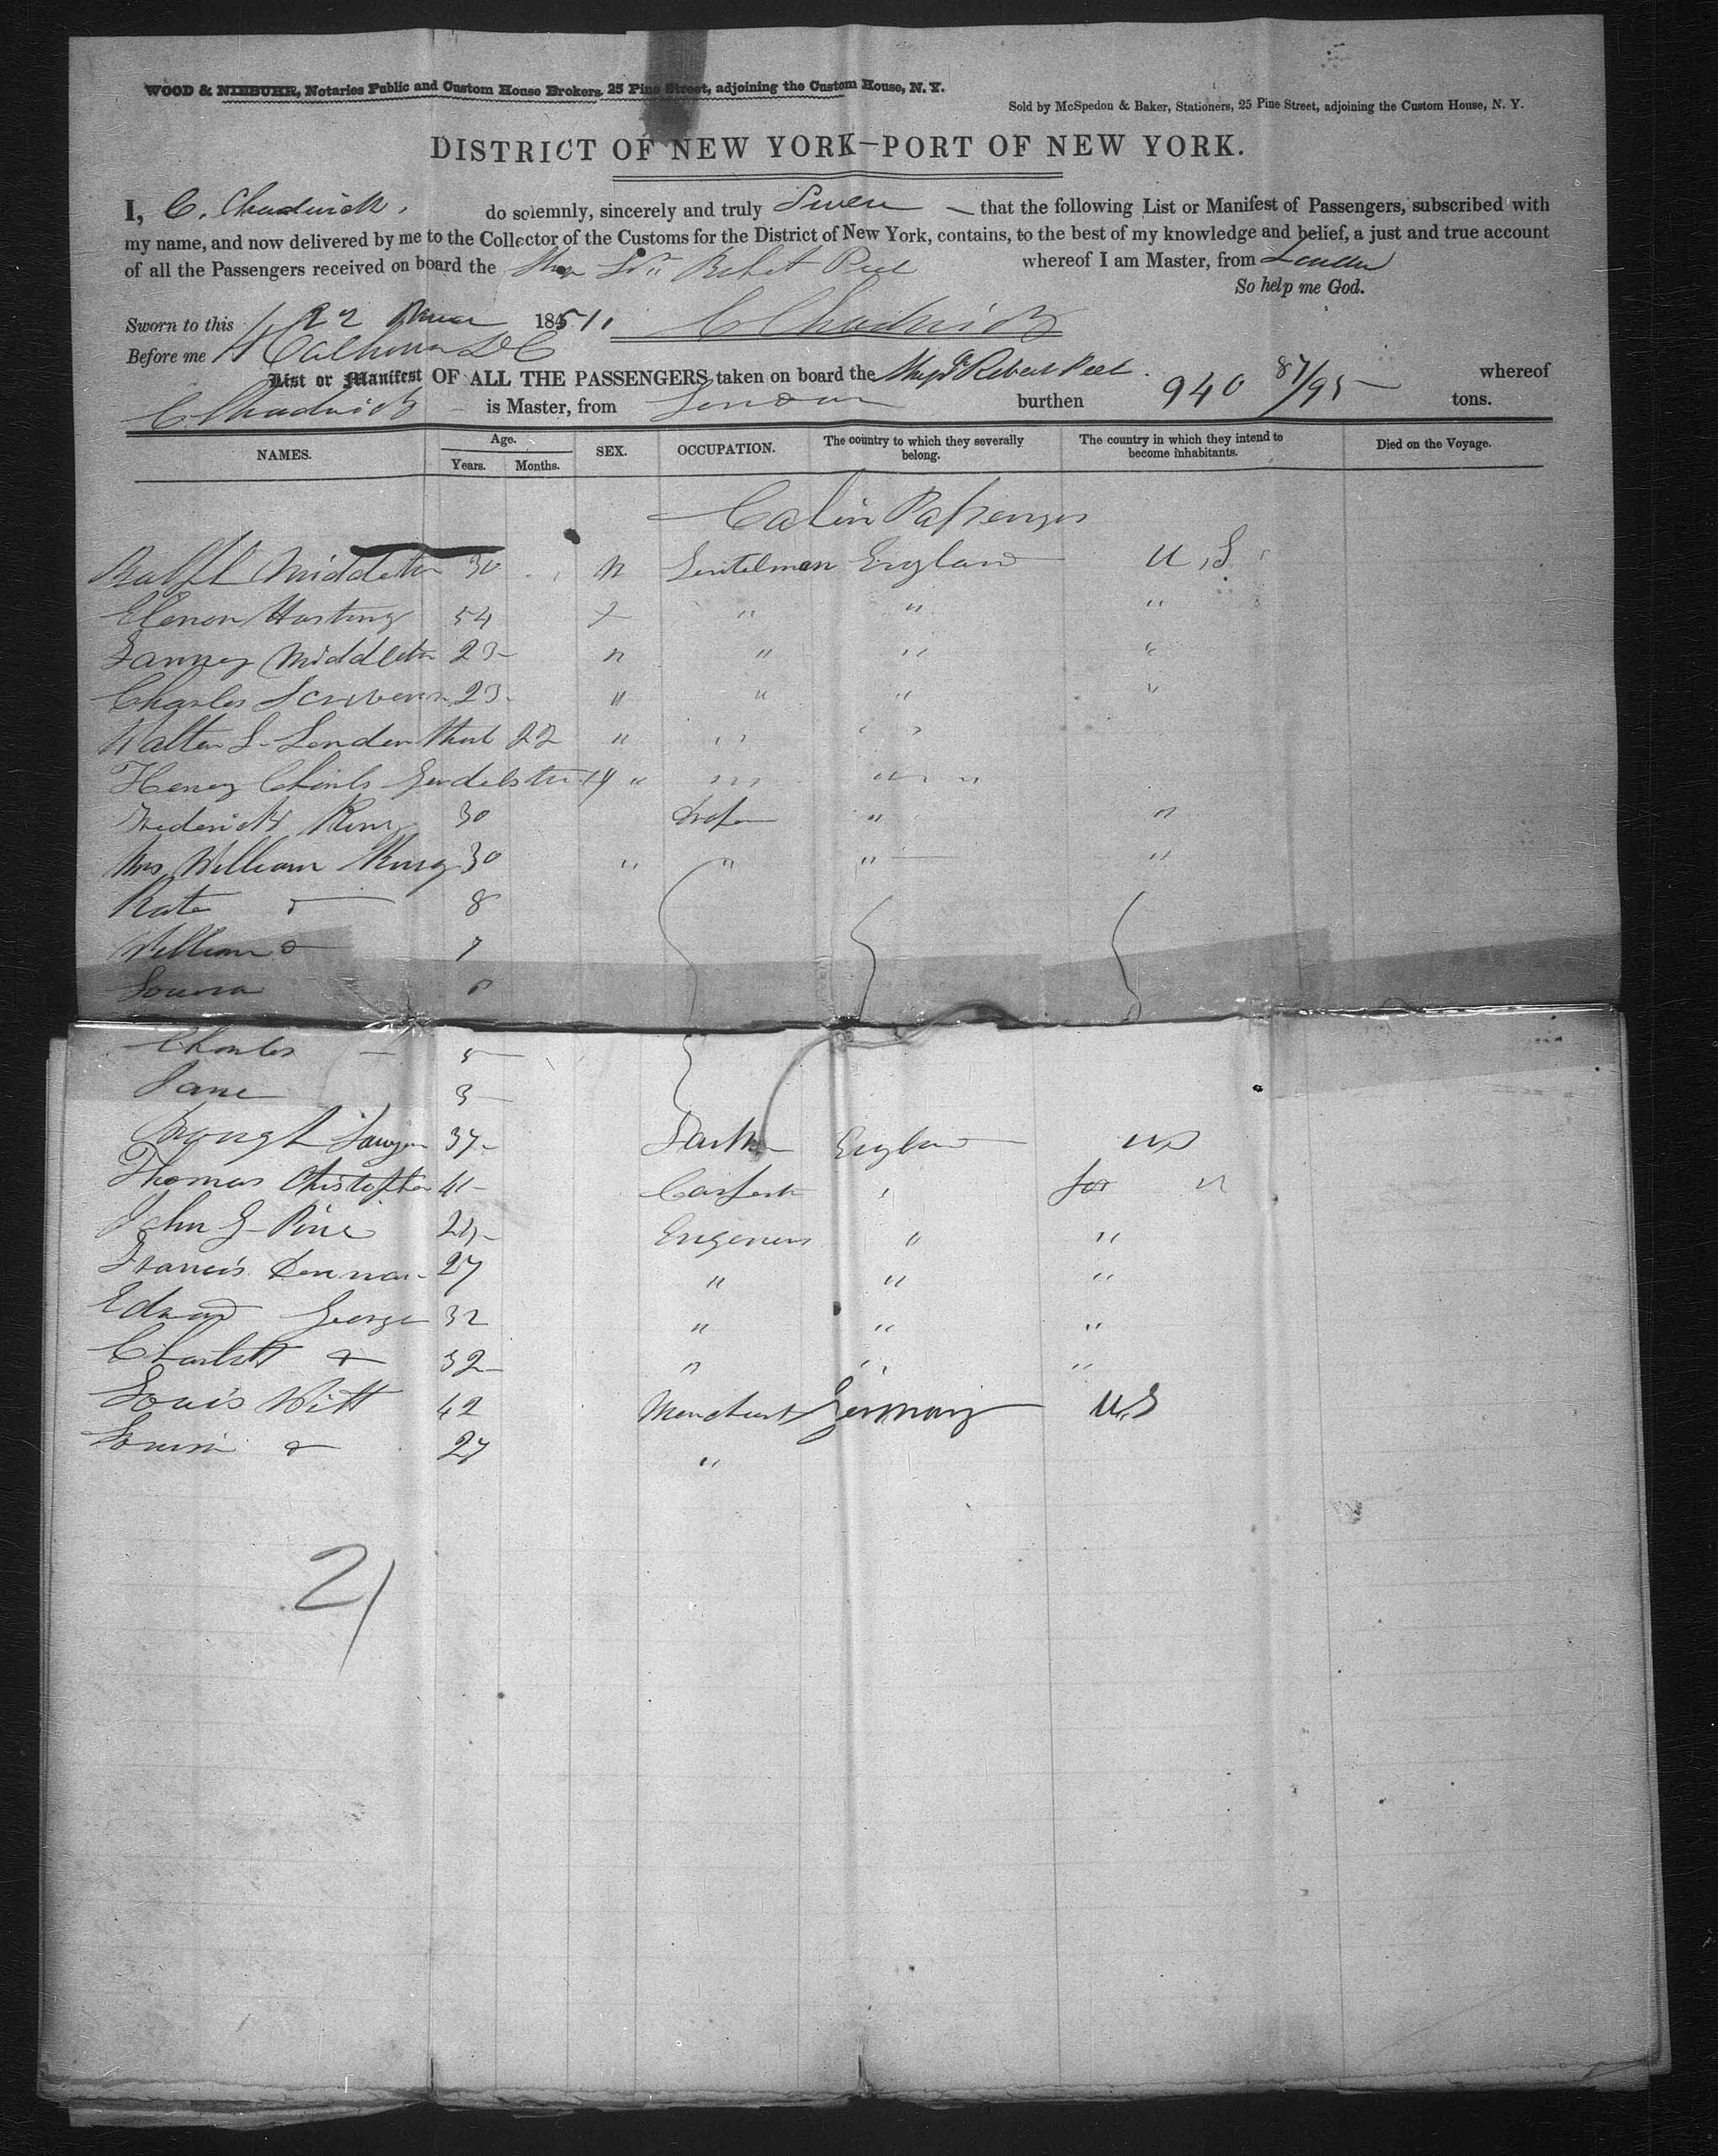 WOOD & NIEBUHR, Notaries Public and Custom House Brokers, 25 Pine Street, adjoining the Custom House, N. Y.
Sold by McSpedon & Baker, Stationers, 25 Pine Street, adjoining the Custom House, N. Y.
DISTRICT OF NEW YORK—PORT OF NEW YORK.
I, C. Chadwick, do solemnly, sincerely and truly Swear — that the following List or Manifest of Passengers, subscribed with
my name, and now delivered by me to the Collector of the Customs for the District of New York, contains, to the best of my knowledge and belief, a just and true account
of all the Passengers received on board the Ship Sir Robert Peel whereof I am Master, from London
So help me God.
Sworn to this 22 1851 C Chadwick
Before me Calhoun
List or Manifest OF ALL THE PASSENGERS taken on board the Ship Sr Robert Peel whereof
C Chadwick is Master, from London burthen 940 87/95 tons.
NAMES. Age. Years. Months. SEX. OCCUPATION. The country to which they severally belong. The country in which they intend to become inhabitants. Died on the Voyage.
Cabin Passengers
Middleton 30 Gentelman England U,S
Elenor Hasting 54 " " "
Fanney Middleton 23 " " "
Charles Scrivener 23 " " " "
Walter S. 22 " " "
Henry 19 " " "
Frederick King 30 " "
Mrs William King 30 " " " "
Kate 8
William 7
Louisa 6
Charles 5
Jane 3
37 England US
Thomas Christopher 41 "
John G Pine 29 Engeneer " "
Francis 27 " " "
Edward George 32 " " "
32 " " "
Louis Witt 42 Merchant Germany U.S
Louisa 27 "
21